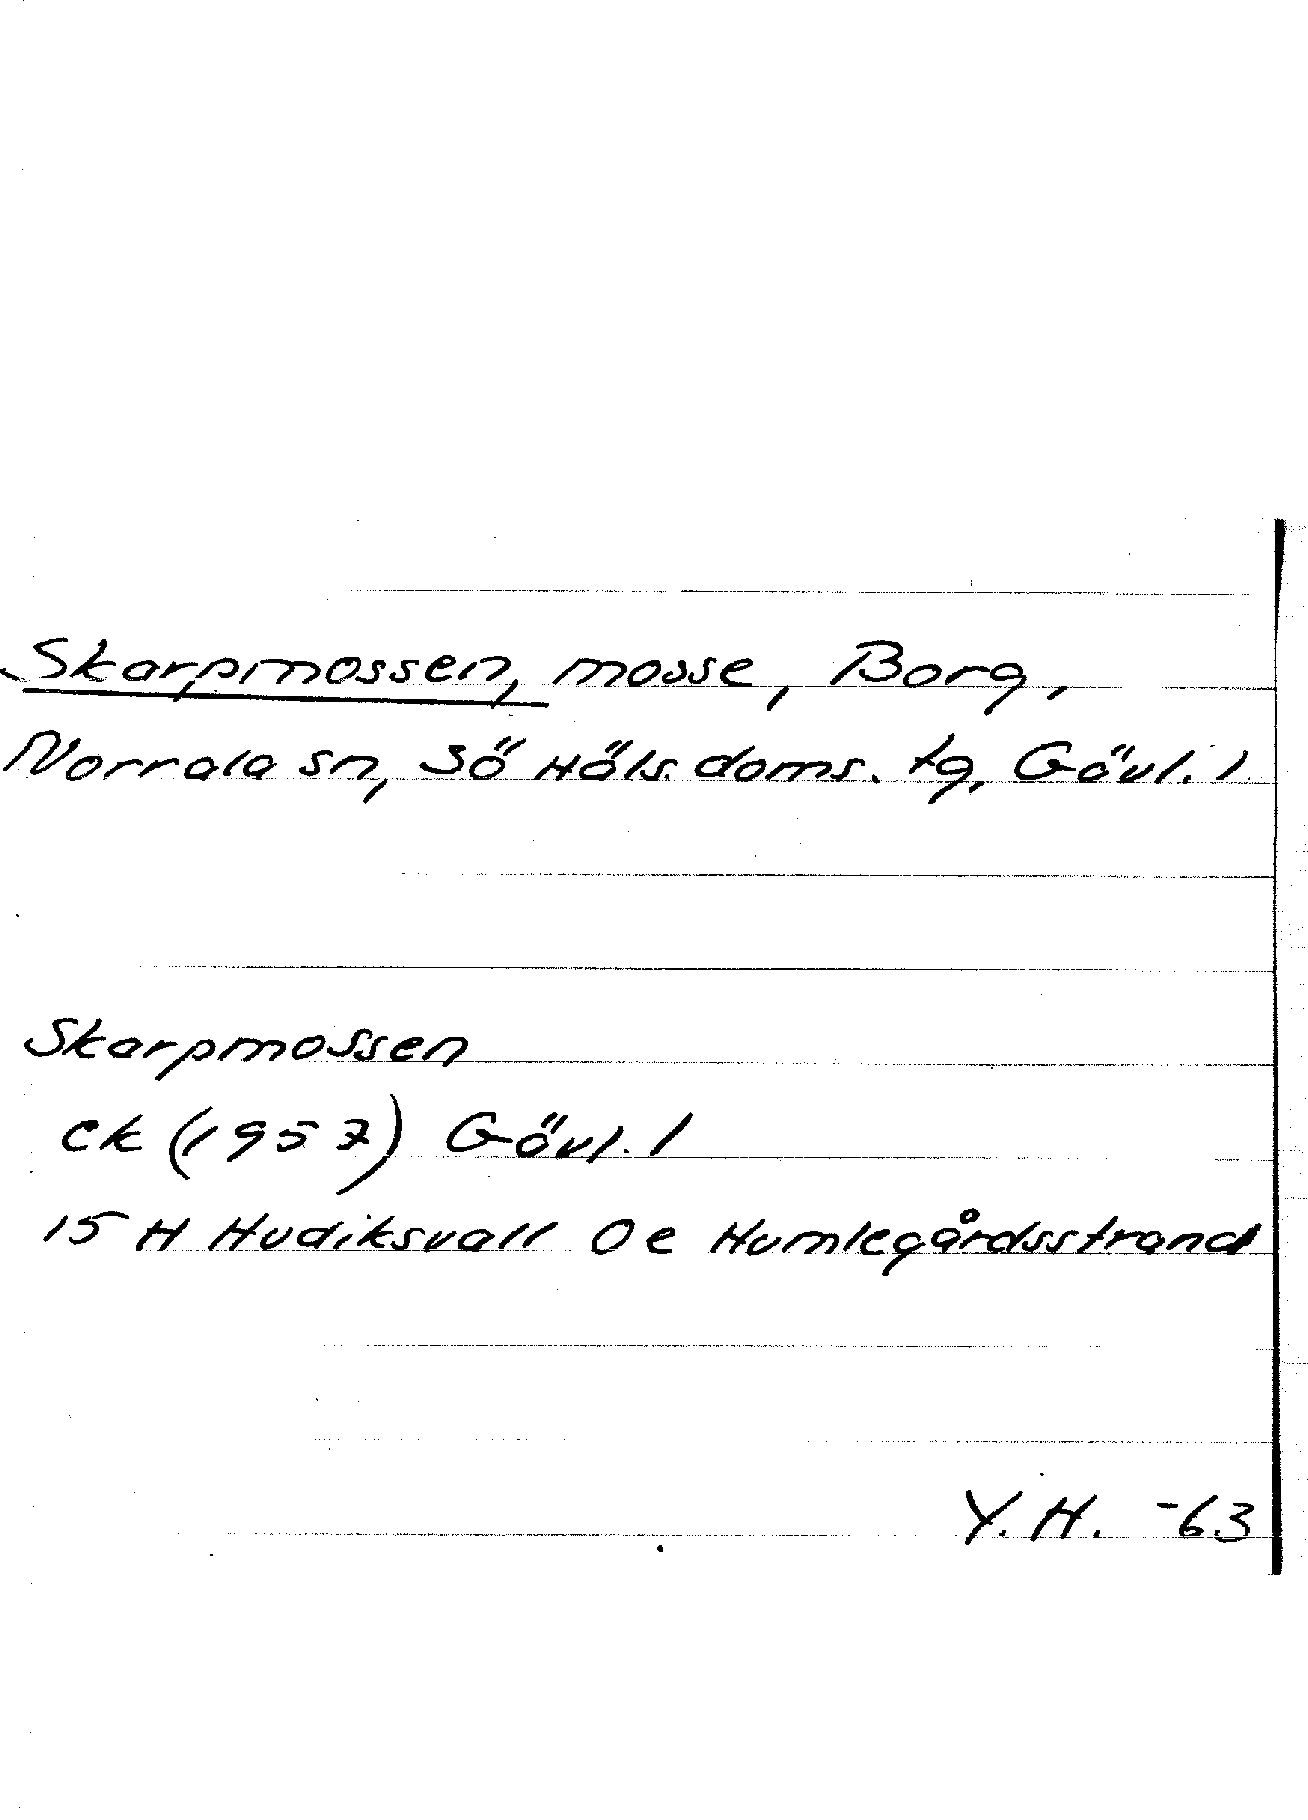 Skarpmossen, mosse, Borg,
Norrala sn, Sö Häls. doms. tg, Gävl. l
Skarpmossen
ek (1957) Gävl. l
15 H Hudiksvall 0 e Humlegårdsstrand
Y. H. -63